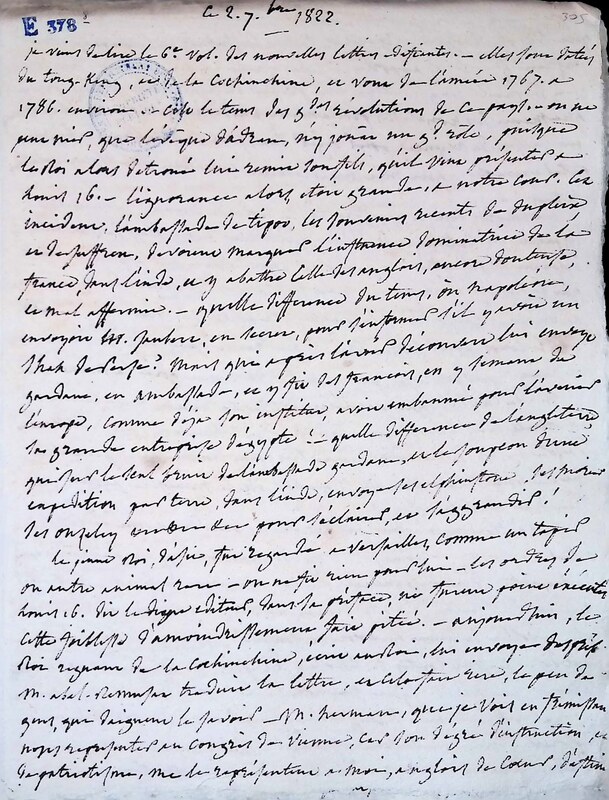 E 378
305
ce 2. 7.bre 1822.
je viens de lire le 6e vol. des nouvelles lettres édifiantes. - elles sont datées
du tong-King, et de la Cochinchine, et vont de l'année 1767. a
1786. environ. - c'est le tems des gdes révolutions de ce pays. - on ne
peut nier, que l'évêque d'adran, n'y joua un gd role, puisque
le Roi alors détroné lui remit son fils, qu'il vint présenter a
Louis 16. - l'ignorance alors, étoit grande, a notre cour. Cet
incident, l'ambassade de tipoo, les souvenirs récents de dupleix
et de suffren, devoient marquer l'influence dominatrice de la
france, dans l'inde, et y abattre celle des anglais, encore douteuse,
et mal affermie. - quelle différence du tems, où napoléon,
envoyoit jaubert, en secret, pour s'informer s'il y avoit un
Shah de Perse? Mais qui après l'avoir découvert lui envoya
gardane, en ambassade, et y fit des français, en y semant de
l'europe, comme déja son institut, avoit embaumé pour l'avenir
sa grande entreprise d'égypte! - quelle différence de l'angleterre
qui sur le seul bruit de l'ambassade gardane, et le soupçon d'une
expédition par terre, dans l'inde, envoya ses elphinstone, ses morier
ses ouseley pour s'éclairer, et s'aggrandir!
le jeune Roi, d'asie, fut regardé a Versailles, comme un tapir
ou autre animal rare - on ne fit rien pour lui - les ordres de
Louis 16. dit le digne éditeur, dans sa préface, ne furent point exécutés
cette foiblesse d'amoindrissement fait pitié. - aujourd'hui, le
Roi regnant de la Cochinchine, écrit au Roi, lui envoye des
M. abel-Remusat traduit la lettre, et cela fait rire, le peu de
gens, qui daignent le savoir - M. hermann, que je vois en
nous représenter au Congrès de Vienne, car son degré d'instruction, et
de patriotisme, me le représentent a moi, anglais de Coeur,